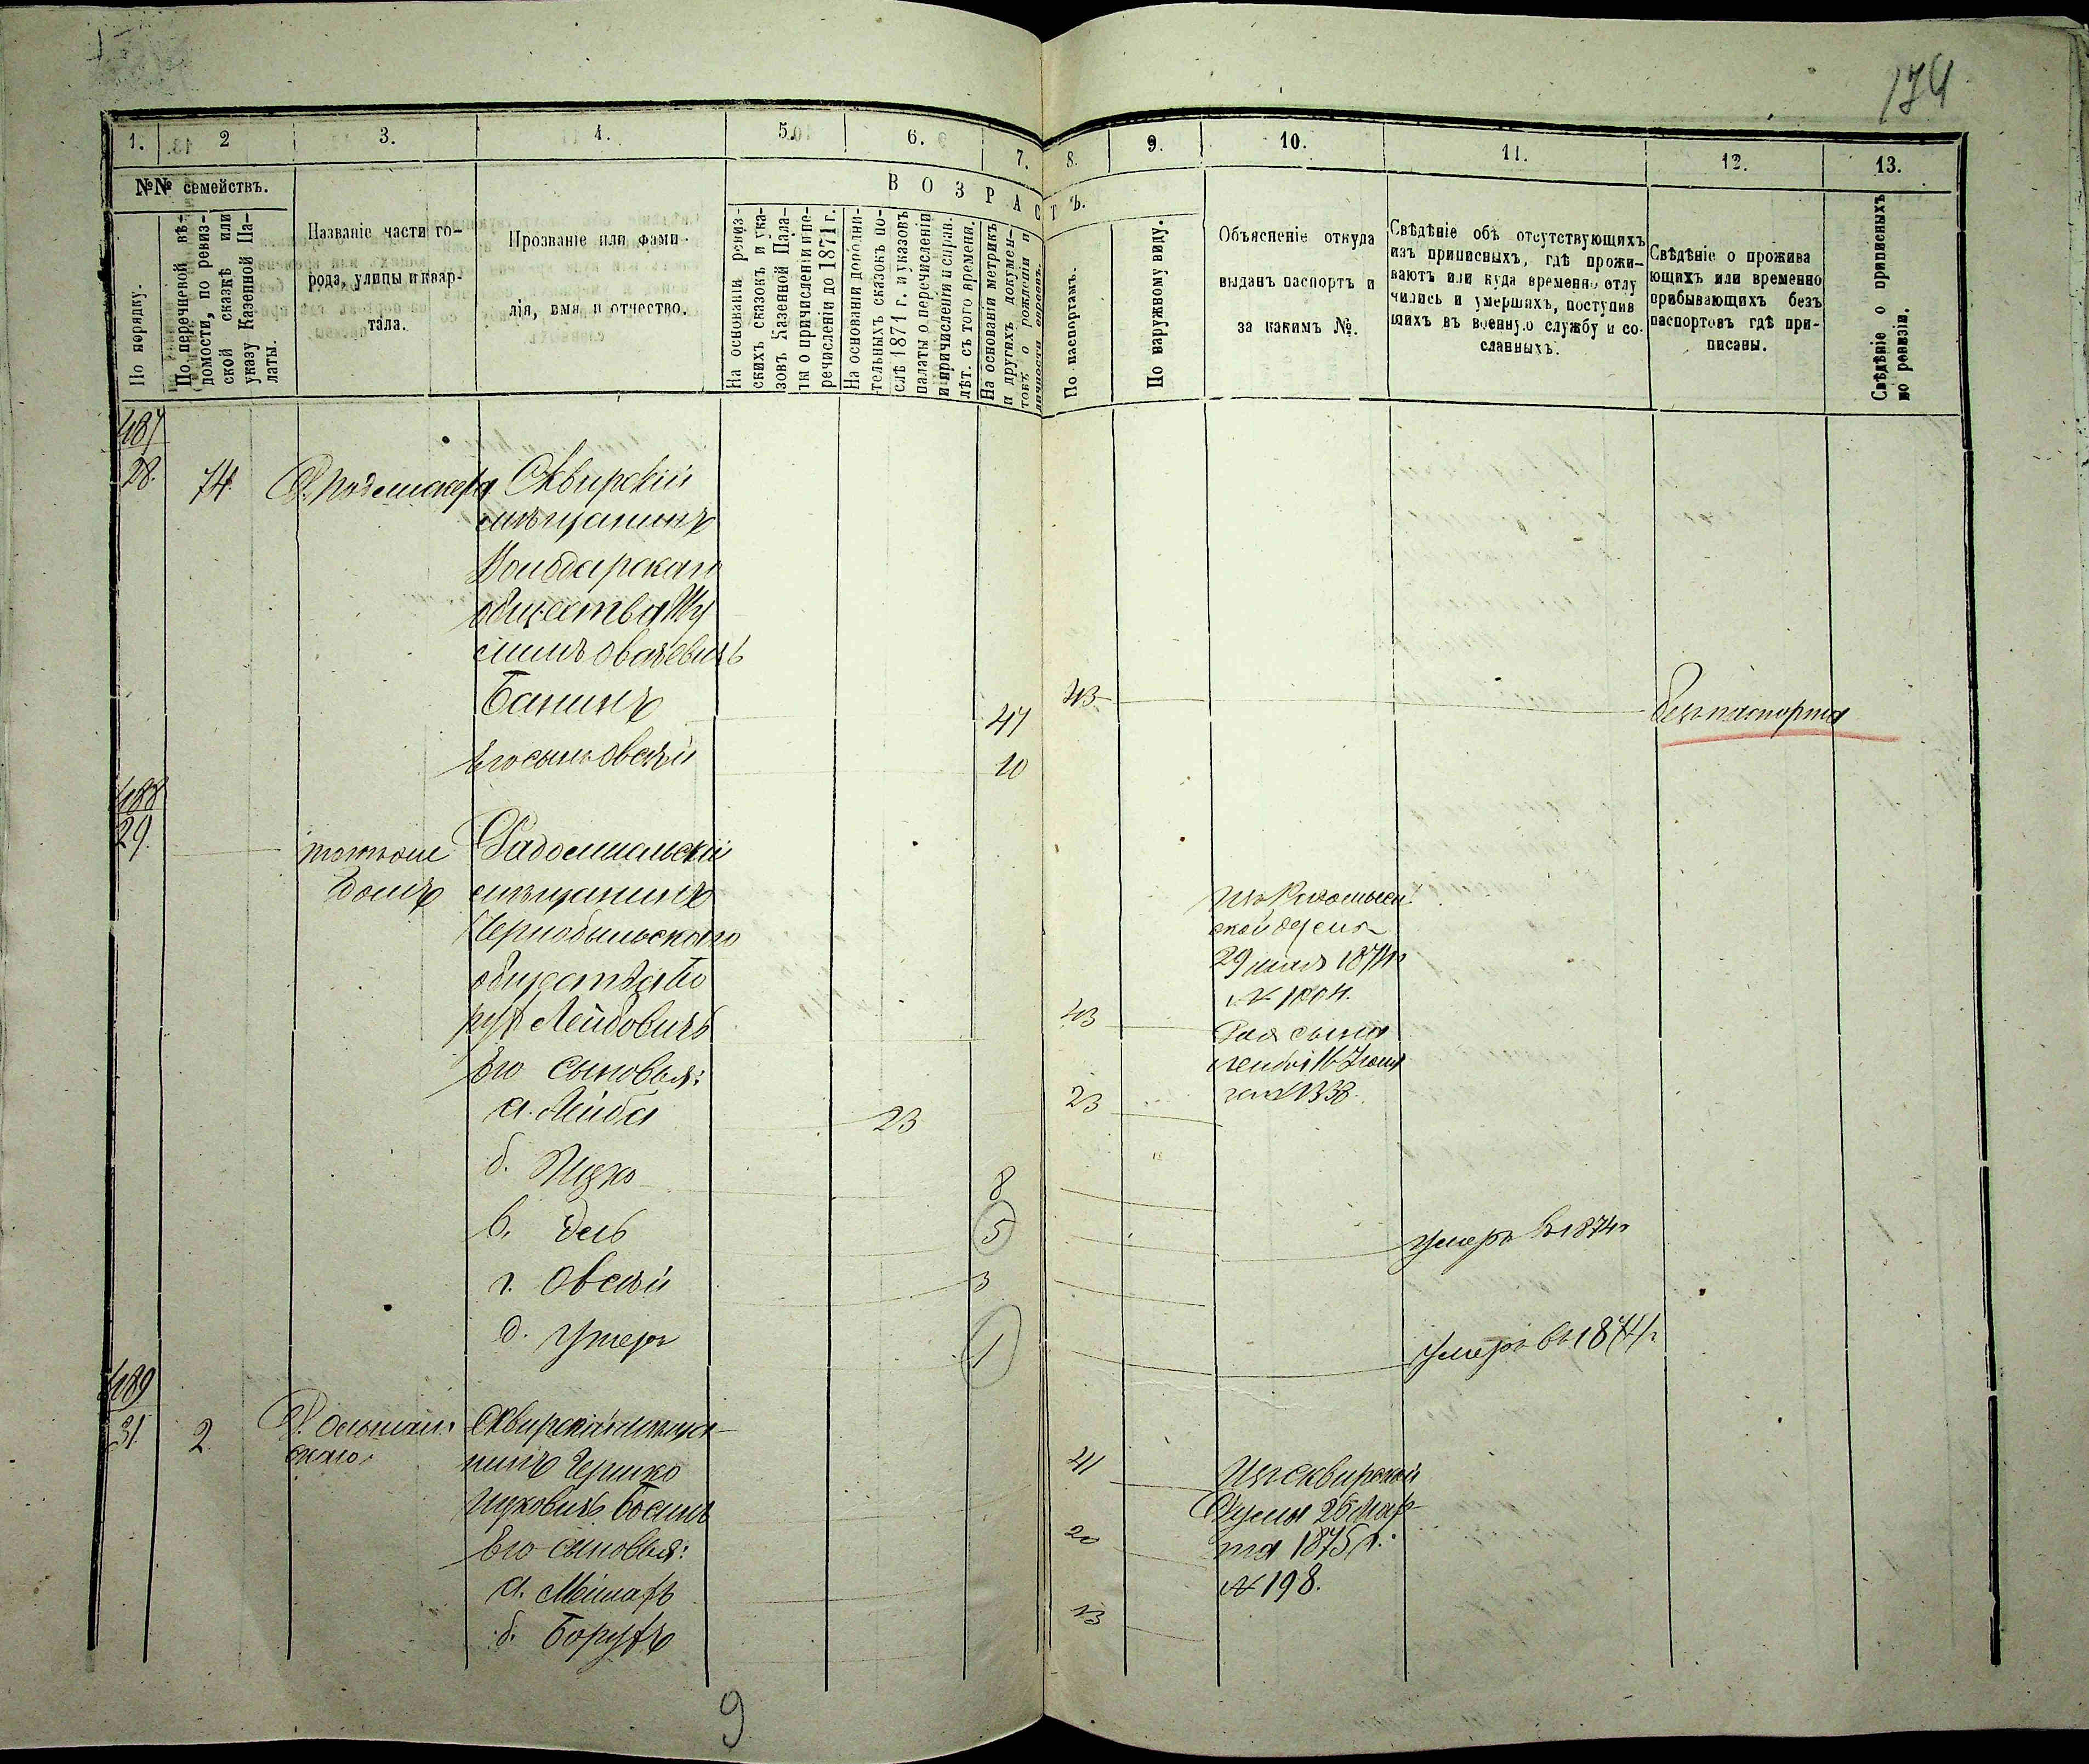 174
1. 2 3. 4. 5. 6. 7. 8. 9. 10. 11. 12. 13.
№№ семействъ.
В О З Р А С Т Ъ.
По порядку.
По перечневой вѣ-
домости, по ревиз-
ской сказкѣ или
указу Казенной Па-
латы.
Названіе части го-
рода, улицы и квар-
тала.
Прозваніе или фами-
лія, имя и отчество.
На основаніи ревиз-
скихъ сказокъ и ука-
зовъ Казенной Пала-
ты о причисленіи и пе-
речисленіи до 1871 г.
На основаніи дополни-
тельныхъ сказокъ по-
слѣ 1871 г. и указовъ
палаты о перечисленіи
и причисленіи и справ.
лѣт. съ того времени.
На основаніи метрикъ
и другихъ докумен-
товъ о рожденіи и
личности опросвъ.
По паспортамъ.
По наружному виду.
Объясненіе откуда
выданъ паспортъ и
за какимъ №.
Свѣдѣніе объ отсутствующихъ
изъ приписныхъ, гдѣ прожи-
ваютъ или куда временно отлу
чились и умершихъ, поступив
шихъ въ военную службу и со-
сланныхъ.
Свѣдѣніе о прожива
ющихъ или временно
прибывающихъ безъ
паспортовъ гдѣ при-
писаны.
Свѣдѣніе о приписныхъ
по ревизіи.
487
28. 74. Сквирскій
мѣщанинъ
общества
Банинъ 47 43 безъ паспорта
Его сынъ Овсѣй 10
488
29. томъ же Радомысльскій
домѣ мѣщанинъ
Чернобыльского
общества Бо
рухъ Лейбовичъ 43
29 мая 1874 г
№ 1804.
Его сыновья:
а. Лейба 23 23
1338.
б. Ицко 8
в. 5 умеръ въ 1874 г
г. Овсѣй 3
д. 1 умеръ въ 1874 г
489
31. 2. Сквирскій мѣща-
нинъ Гершко 41 Изъ Сквирской
Ицковичъ Думы 26 Мар-
Его сыновья: 20 та 1875 г.
а. № 198.
б. Борухъ 13
9